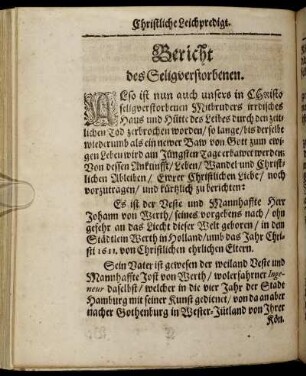 Christliche Leichpredigt.
Bericht
des Seligverstorbenen.
Also ist nun auch unsers in Christo
seligverstorbenen Mitbruders irrdisches
Haus und Hütte des Leibes durch den zeit-
lichen Tod zerbrochen worden / so lange / bis derselbe
wiederumb als ein newer Baw von Gott zum ewi-
gen Leben wird am Jüngsten Tage erbawet werden.
Von dessen Ankunfft / Leben / Wandel und Christ-
lichen Ableiben / Ewrer Christlichen Liebe / noch
vorzutragen / und kürtzlich zu berichten:
Es ist der Veste und Mannhaffte Herr
Johann von Werth / seines vorgebens nach / ohn
gefehr an das Liecht dieser Welt geboren / in den
Städtlein Werth in Holland / umb das Jahr Chri-
sti 1611. von Christlichen ehrlichen Eltern.
Sein Vater ist gewesen der weiland Veste und
Mannhaffte Jost von Werth / wolerfahrner Inge-
neur daselbst / welcher in die vier Jahr der Stadt
Hamburg mit seiner Kunst gedienet / von da an aber
nacher Gothenburg in Wester-Jütland von Ihrer
Kön.